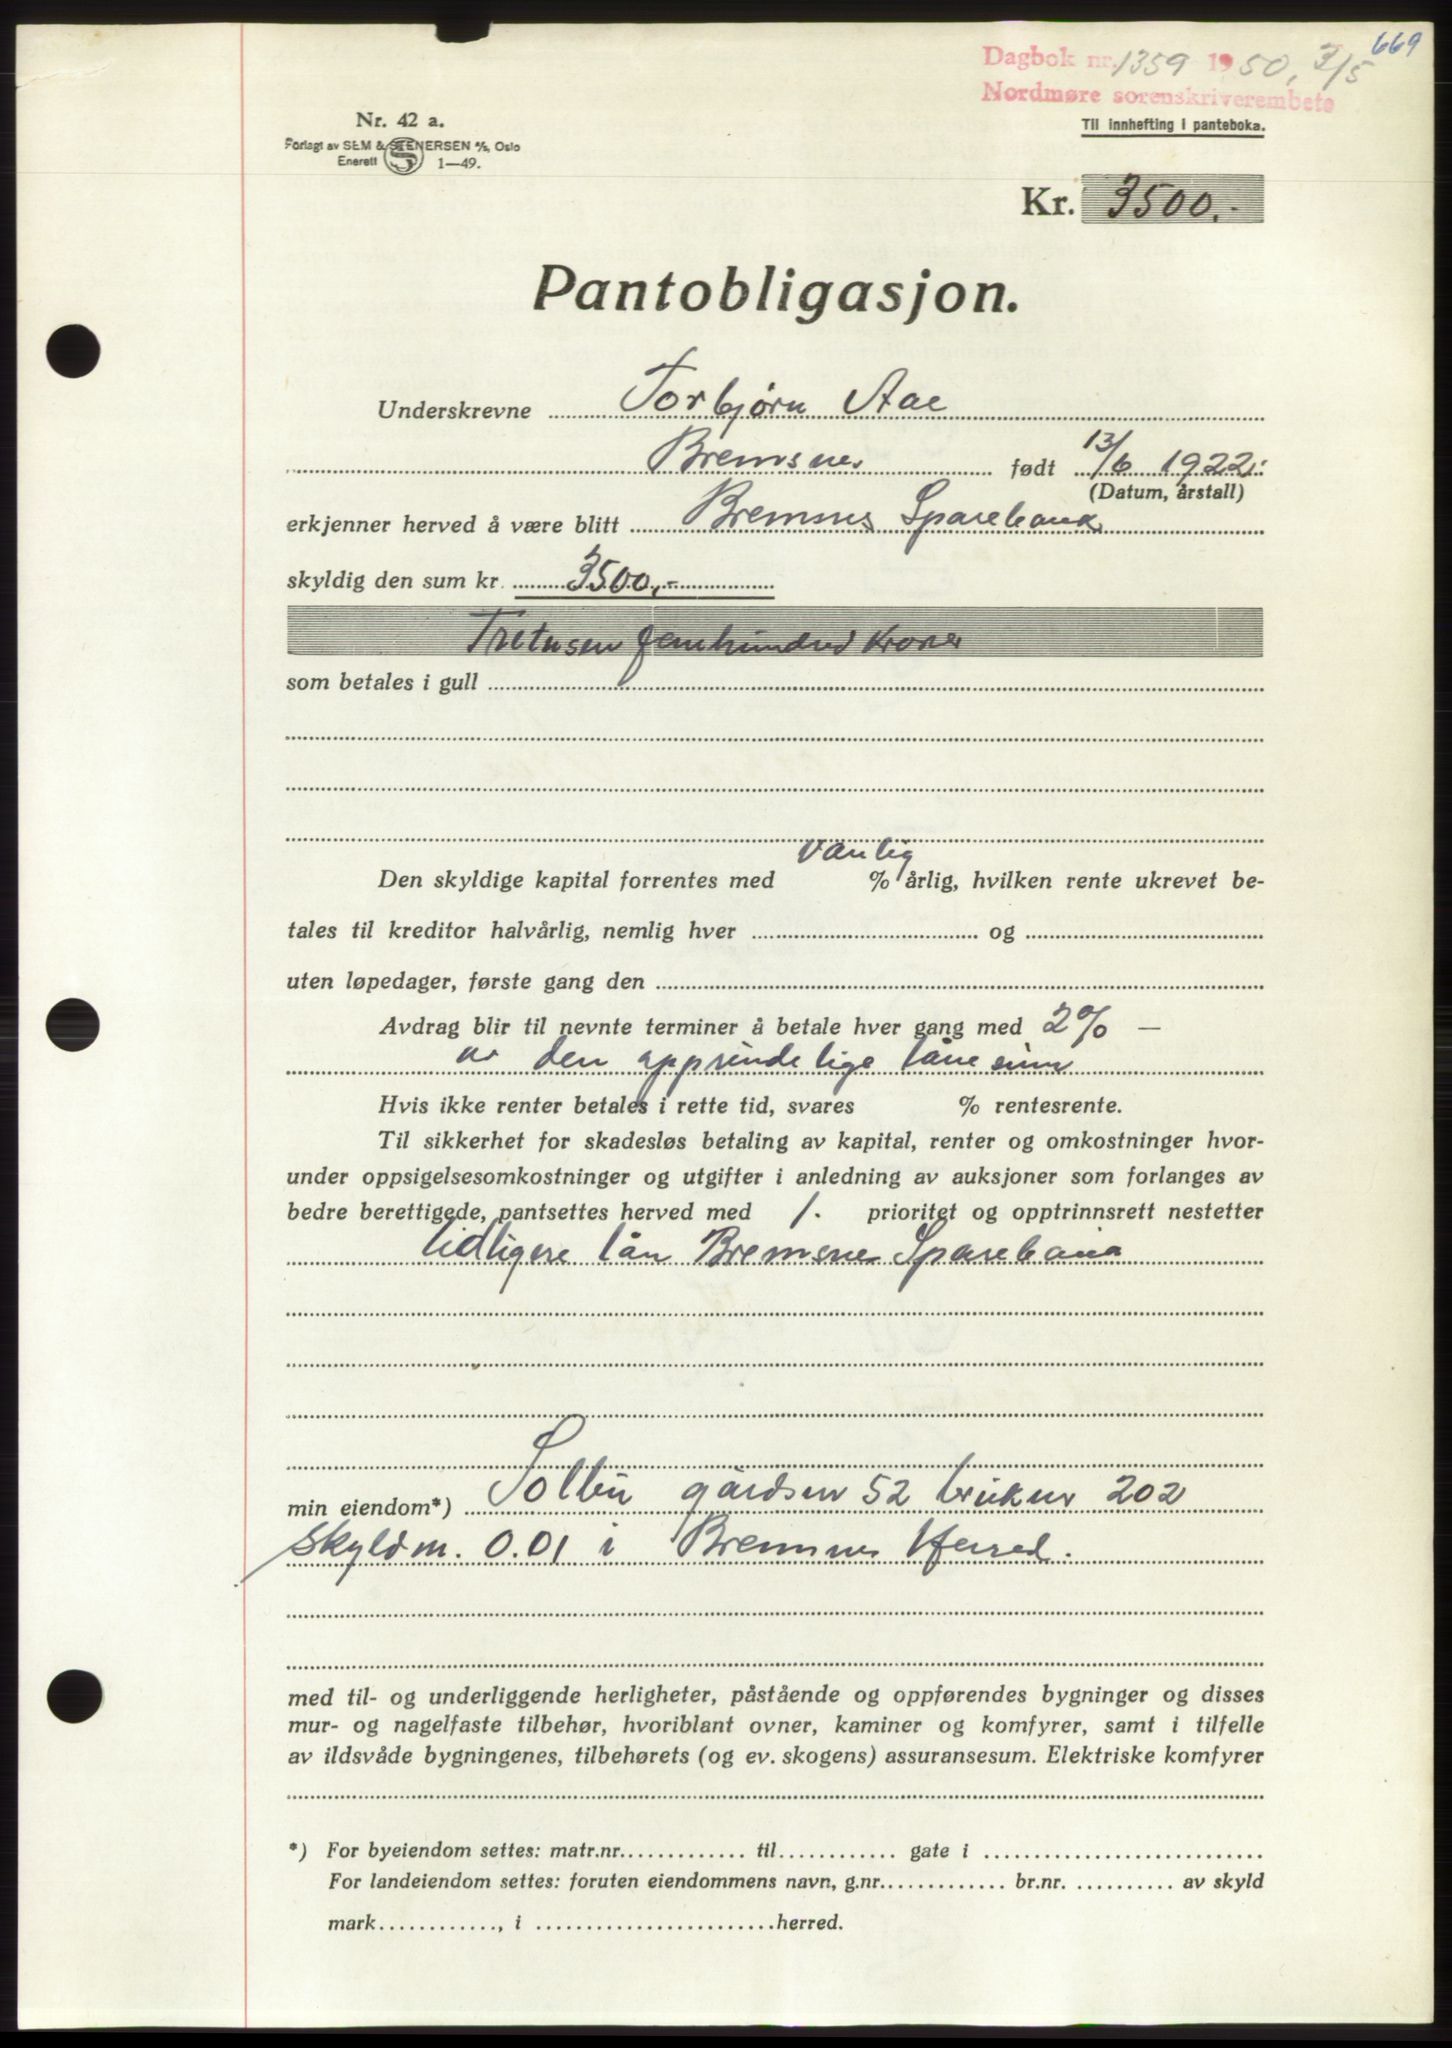 669
Dagbok nr. 1359 1950, 3/5
Nordmøre sorenskriverembete
Til innhefting i panteboka.
Nr. 42 a.
Forlagt av SEM & STENERSEN A/S, Oslo
Enerett 1—49.
Kr. 3500.-
Pantobligasjon.
Underskrevne Torbjørn Aae
Bremsnes født 13/6 1922.
(Datum, årstall)
erkjenner herved å være blitt Bremsnes Sparebank
skyldig den sum kr. 3500.-
Tretusen femhundred Kroner
som betales i gull
Den skyldige kapital forrentes med vanlig % årlig, hvilken rente ukrevet be-
tales til kreditor halvårlig, nemlig hver og
uten løpedager, første gang den
Avdrag blir til nevnte terminer å betale hver gang med 2% —
av den opprindelige lånesum
Hvis ikke renter betales i rette tid, svares % rentesrente.
Til sikkerhet for skadesløs betaling av kapital, renter og omkostninger hvor-
under oppsigelsesomkostninger og utgifter i anledning av auksjoner som forlanges av
bedre berettigede, pantsettes herved med 1. prioritet og opptrinnsrett nestetter
tidligere lån Bremsnes Sparebank
min eiendom*) Solbu gårdsnr 52 bruksnr 202
skyldm. 0.01 i Bremsnes Herred.
med til- og underliggende herligheter, påstående og oppførendes bygninger og disses
mur- og nagelfaste tilbehør, hvoriblant ovner, kaminer og komfyrer, samt i tilfelle
av ildsvåde bygningenes, tilbehørets (og ev. skogens) assuransesum. Elektriske komfyrer
*) For byeiendom settes: matr.nr. til gate i
For landeiendom settes: foruten eiendommens navn, g.nr. br.nr. av skyld
mark , i herred.